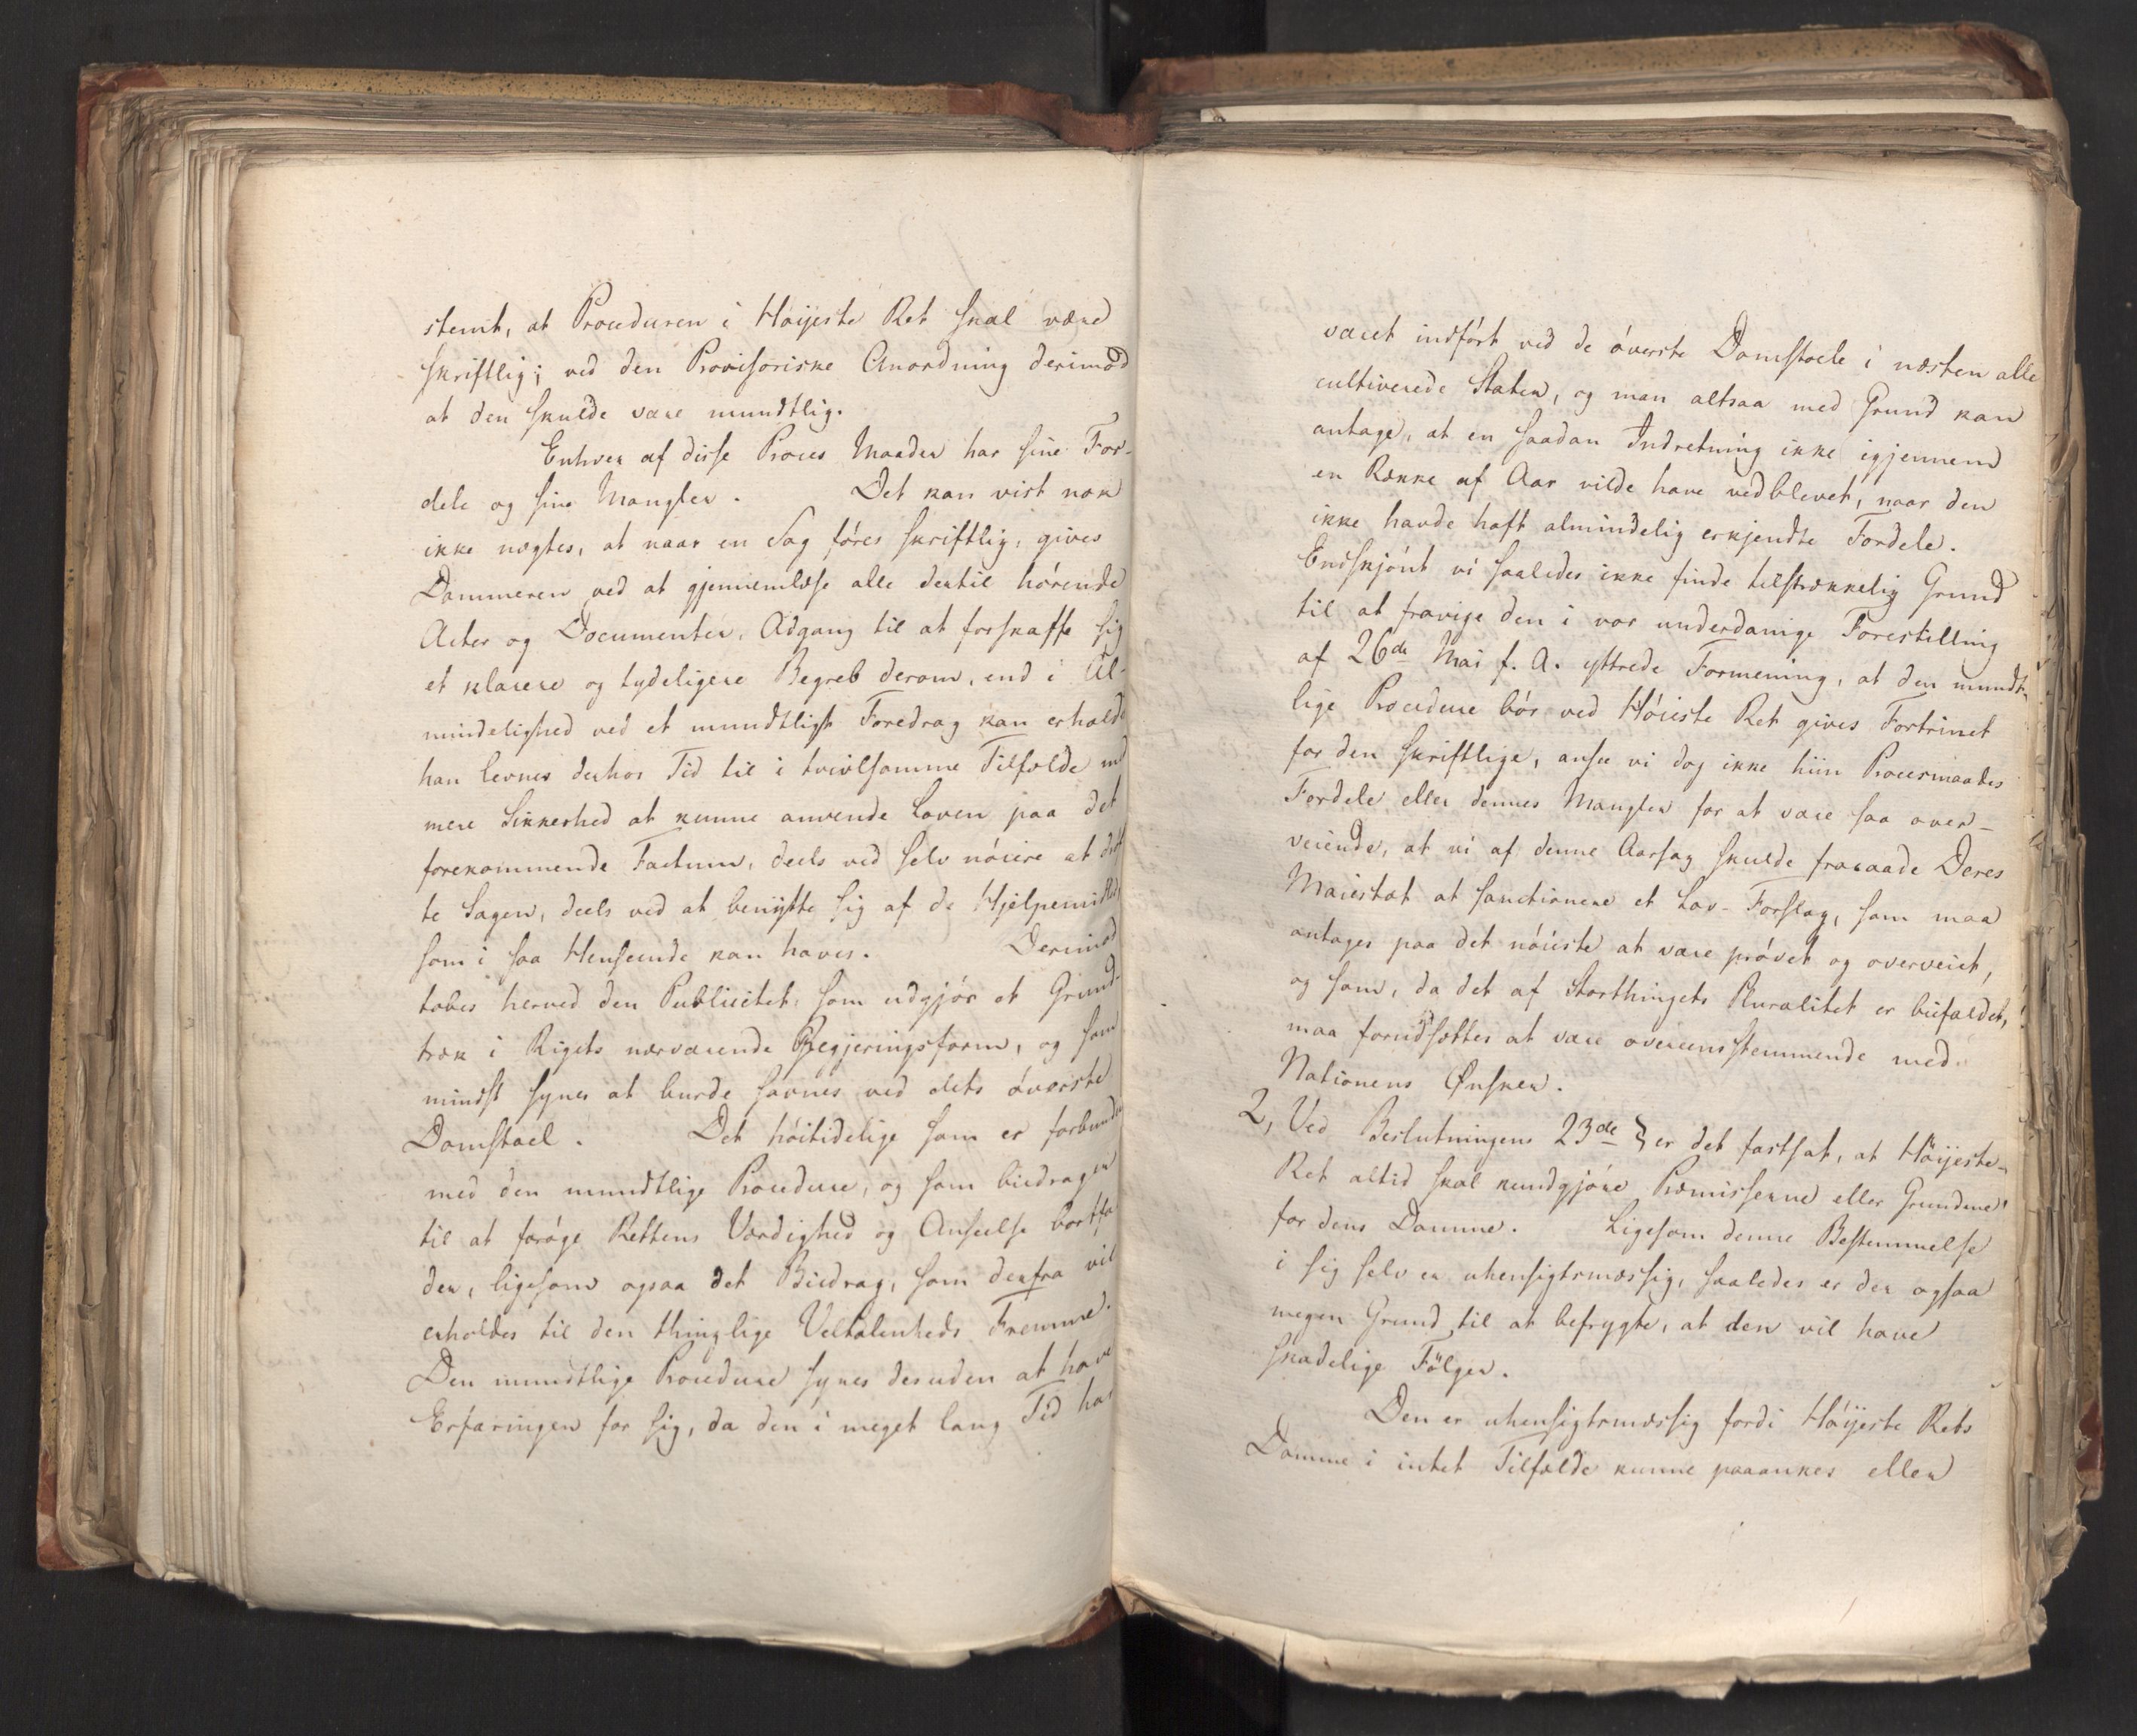 stemt, at Proceduren i Høijeste Ret skal være
skriftlig; ved den Provisoriske Anordning derimod
at den skulde være mundtlig.
Enhver af disse Proces Maader har sine For-
dele og sine Mangler. Det kan vist nok
ikke nægtes, at naar en Sag føres skriftlig, gives
Dommeren ved at gjennemlæse alle dertil hørende
Acter og Documenter, Adgang til at forskaffe sig
et klarere og tydeligere Begreb derom, end i Al-
mindelighed ved et mundtligt Foredrag kan erholde
han levnes derhos Tid til i tvivlsomme Tilfælde med
mere Sikkerhed at kunne anvende Loven paa det
forekommende Factum, deels ved selv nøiere at drøf
te Sagen, deels ved at benytte sig af de Hjelpemidler
som i saa Henseende kan haves. Derimod
tabes herved den Publicitet, som udgjør et Grund-
træk i Rigets nærværende Regjeringsform, og som
mindst synes at burde savnes ved dets øverste
Domstoel. Det høitidelige som er forbunden
med den mundtlige Procedure, og som biedrager
til at forøge Rettens Værdighed og Anseelse bortfa
der, ligesom ogsaa det Biedrag, som derfra vil
erholdes til den thinglige Veltalenheds Fremme.
Den mundtlige Procedure synes desuden at have
Erfaringen for sig, da den i meget lang Tid har
været indført ved de øverste Domstoele i næsten alle
cultiverede Stater, og man altsaa med Grund kan
antage, at en saadan Indretning ikke igjennem
en Række af Aar vilde have vedblevet, naar den
ikke havde haft almindelig erkjendte Fordele.
Endskjønt vi saaledes ikke finde tilstrækkelig Grund
til at fravige den i vor underdanige Forestilling
af 26de Mai f. A. yttrede Formening, at den mundt-
lige Procedure bør ved Høieste Ret gives Fortrinet
for den skriftlige, ansee vi dog ikke hiin Procesmaades
Fordele eller dennes Mangler for at være saa over-
veiende, at vi af denne Aarsag skulde fraraade Deres
Maiestæt at sanctionere et Lov-Forslag, som maa
antages paa det nøieste at være prøvet og overveiet,
og som, da det af Storthingets Pluralitet er biefaldet,
maa forudsættes at være overeensstemmende med
Nationens Ønsker.
2, Ved Beslutningens 23de § er det fastsat, at Høijeste-
Ret altid skal kundgjøre Præmisserne eller Grundene
for dens Domme. Ligesom denne Bestemmelse
i sig selv er uhensigtsmæssig, saaledes er der ogsaa
megen Grund til at befrygte, at den vil have
skadelige Følger.
Den er uhensigtsmæssig fordi Høijeste Rets
Domme i intet Tilfælde kunne paaankes eller